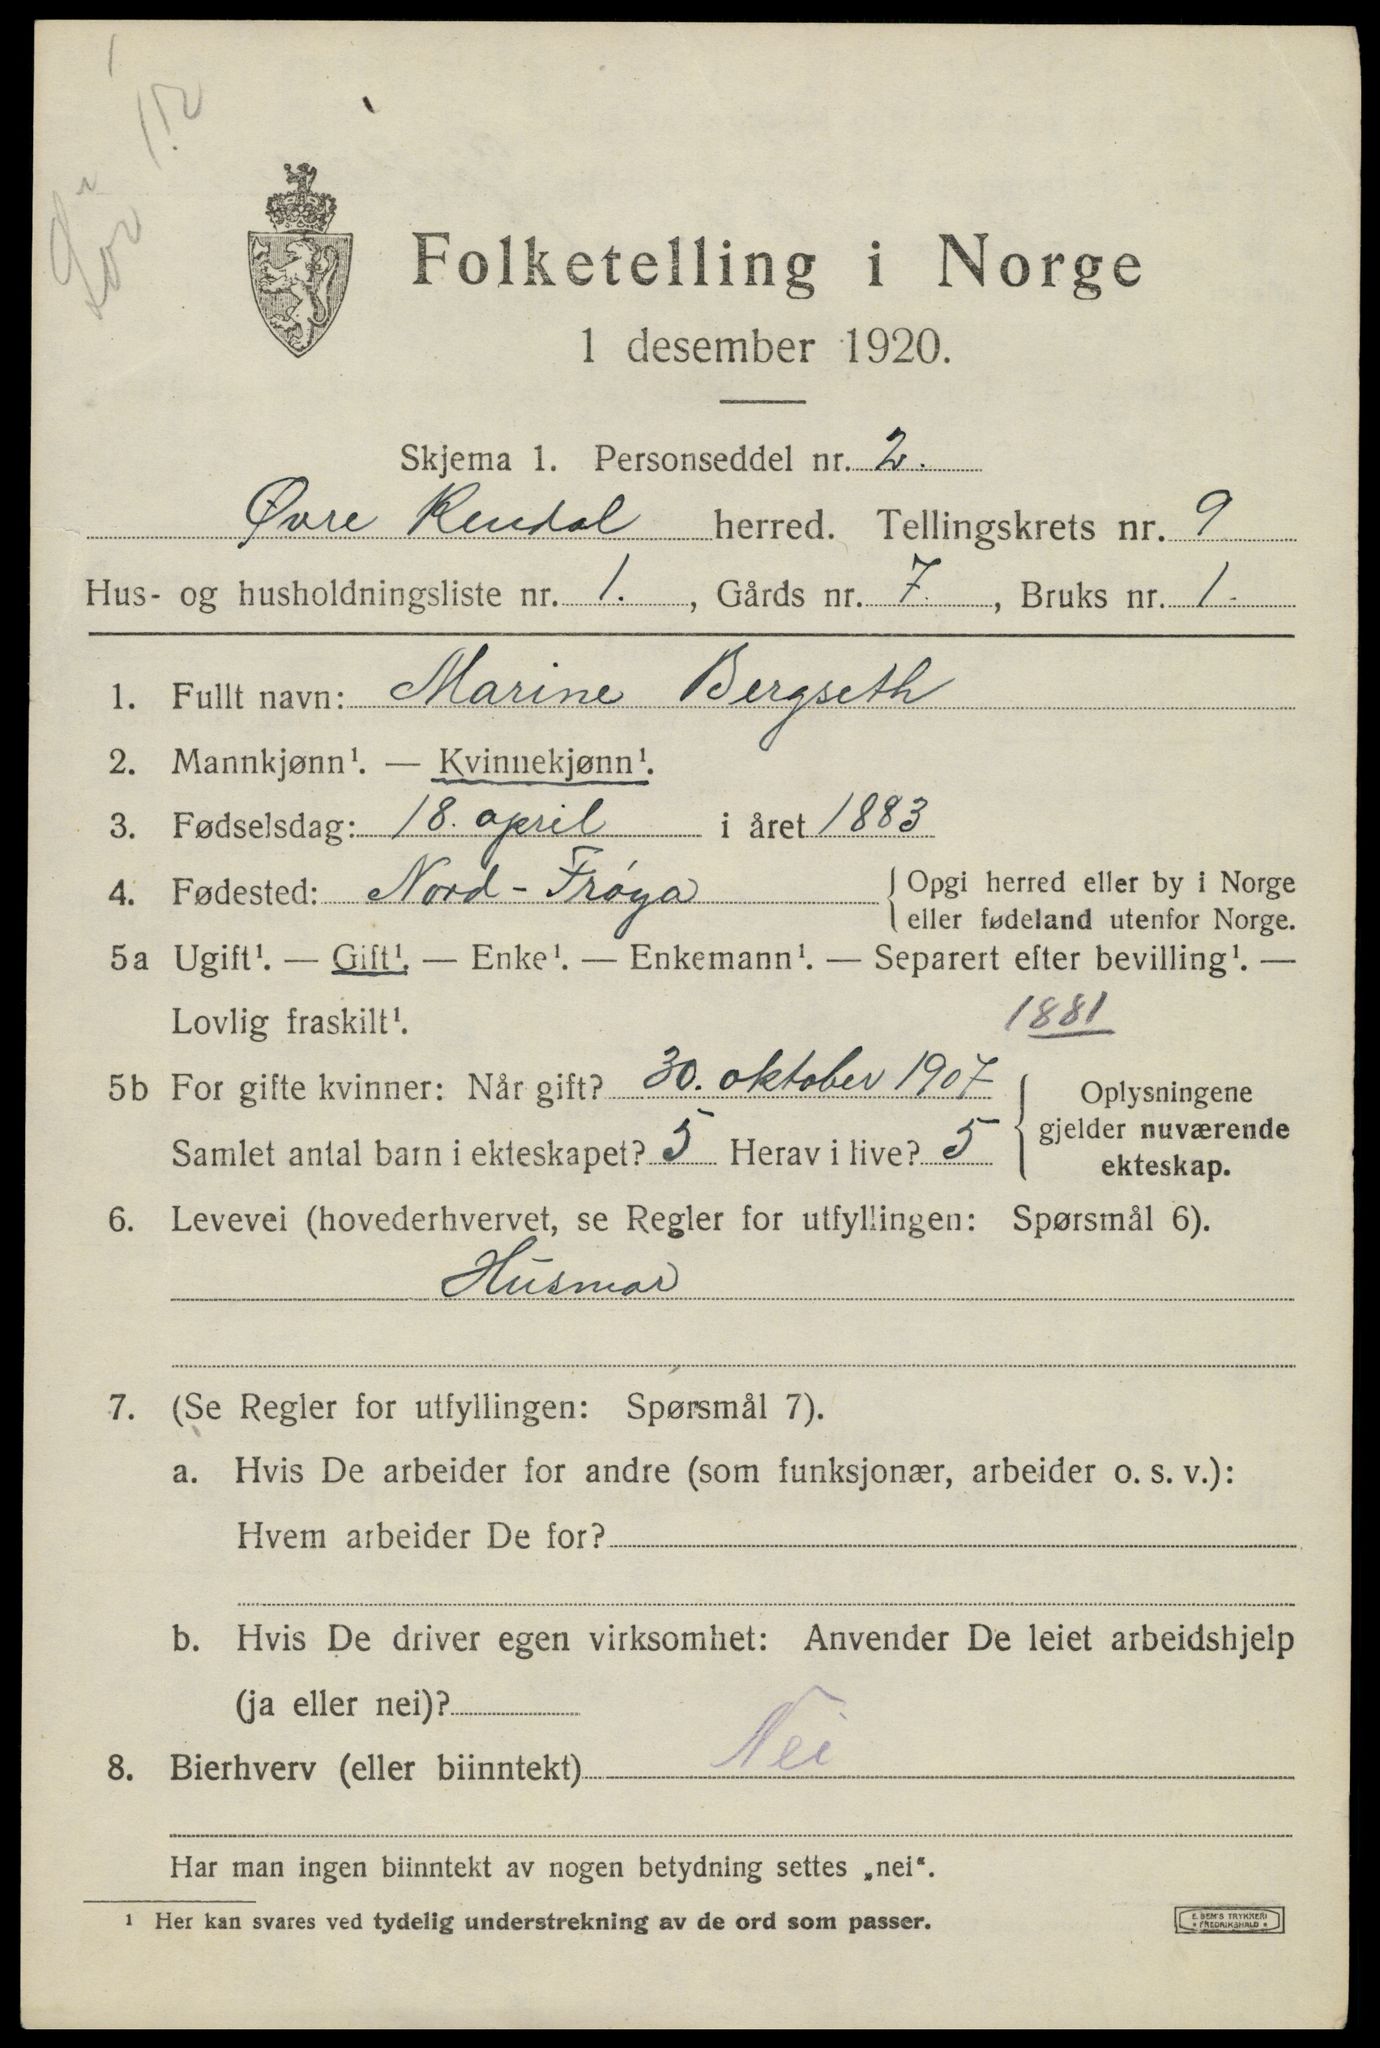 Folketelling i Norge
1 desember 1920.
Skjema 1. Personseddel nr. 2.
Øvre Rendal herred. Tellingskrets nr. 9
Hus- og husholdningsliste nr. 1., Gårds nr. 7., Bruks nr. 1.
1. Fullt navn: Marine Bergseth
2. Mannkjønn¹. — Kvinnekjønn¹.
3. Fødselsdag: 18. april i året 1883
4. Fødested: Nord-Frøya { Opgi herred eller by i Norge
eller fødeland utenfor Norge.
5a Ugift¹. — Gift¹. — Enke¹. — Enkemann¹. — Separert efter bevilling¹. —
Lovlig fraskilt¹.
1881
5b For gifte kvinner: Når gift? 30. oktober 1907
Samlet antal barn i ekteskapet? 5 Herav i live? 5
{ Oplysningene
gjelder nuværende
ekteskap.
6. Levevei (hovederhvervet, se Regler for utfyllingen: Spørsmål 6).
Husmor
7. (Se Regler for utfyllingen: Spørsmål 7).
a. Hvis De arbeider for andre (som funksjonær, arbeider o. s. v.):
Hvem arbeider De for?
b. Hvis De driver egen virksomhet: Anvender De leiet arbeidshjelp
(ja eller nei)?
8. Bierhverv (eller biinntekt) Nei
Har man ingen biinntekt av nogen betydning settes „nei“.
¹ Her kan svares ved tydelig understrekning av de ord som passer.
E. SEM'S TRYKKERI
FREDRIKSHALD